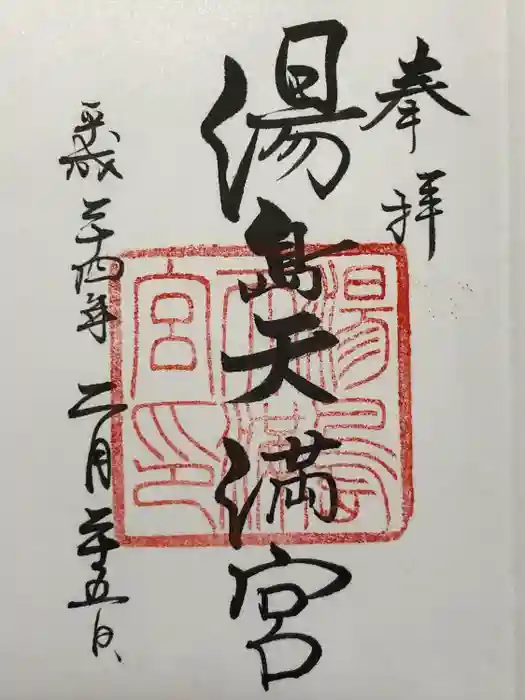 奉拝
湯島天満宮
平成二十四年二月二十五日
湯島
天満
宮印